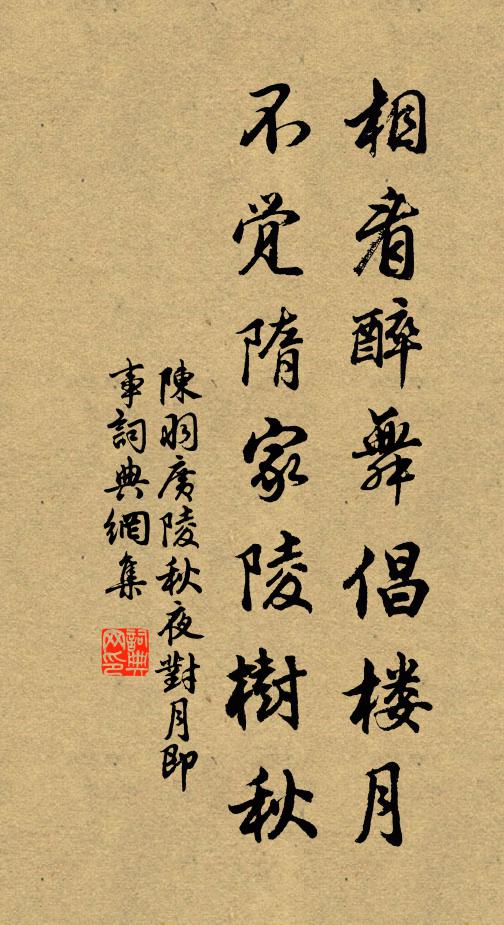 相看醉舞倡楼月
不觉隋家陵樹秋
陳羽廣陵秋夜對月即
事詞典網集
詞典
网印